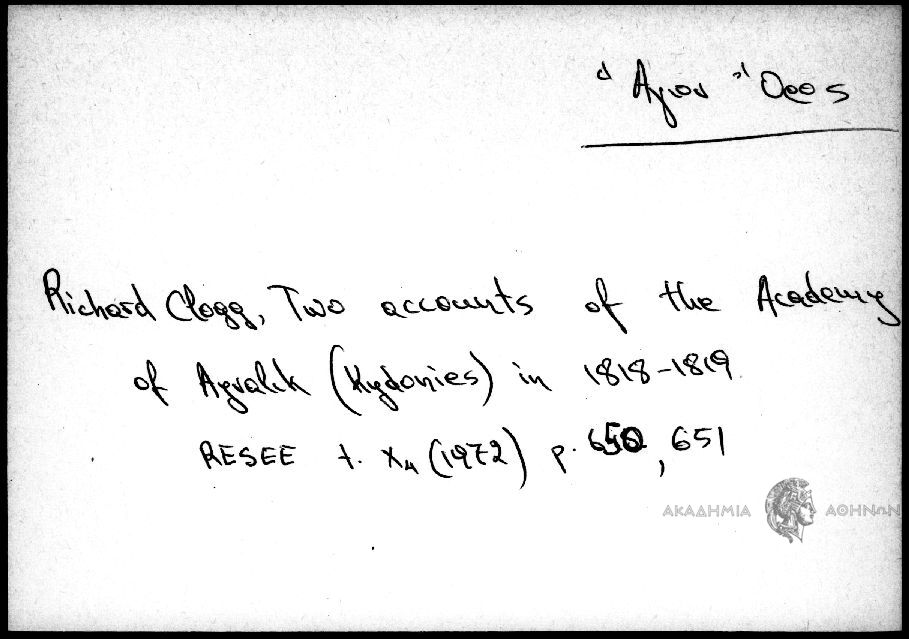 Ἅγιον Ὄρος
Richard Clogg, Two accounts of the Academy
of Ayvalik (Kydonies) in 1818-1819
RESEE t. X₄ (1972) p. 650, 651
ΑΚΑΔΗΜΙΑ ΑΘΗΝΩΝ